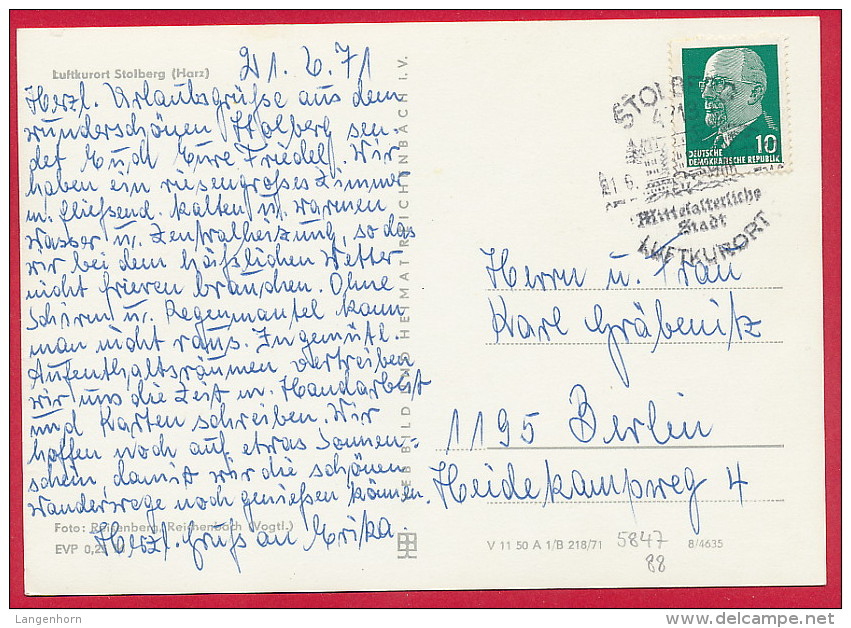 Luftkurort Stolberg (Harz)
21.6.71
Herzl. Urlaubsgrüße aus dem
wunderschönen Stolberg sen-
det Euch Eure Friedel. Wir
haben ein riesengroßes Zimmer
m. fließend. kalten u. warmen
Wasser u. Zentralheizung, so das
wir bei dem häßlichen Wetter
nicht frieren brauchen. Ohne
Schirm u. Regenmantel kann
man nicht raus. In gemütl.
Aufenthaltsräumen vertreiben
wir uns die Zeit m. Handarbeit
und Karten schreiben. Wir
hoffen noch auf etwas Sonnen-
schein, damit wir die schönen
Wanderwege noch genießen können.
Herzl. Gruß an Erika.
Foto: Reifenberg, Reichenbach (Vogtl.)
EVP 0,2
BILD UND HEIMAT REICHENBACH I. V.
STOLBERG
4713
21.6.
Mittelalterliche
Stadt
LUFTKURORT
10
DEUTSCHE
DEMOKRATISCHE REPUBLIK
Herrn u. Frau
Karl Gräbenitz
1195 Berlin
Heidekampweg 4
V 11 50 A 1/B 218/71
5847
88
8/4635
Langenhorn
www.delcampe.net